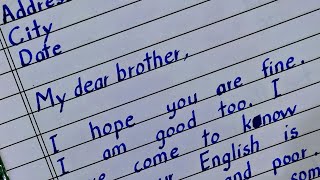 Address
City
Date
My dear brother,
I hope you are fine.
I am good too. I
come to know
English is
and poor.
som